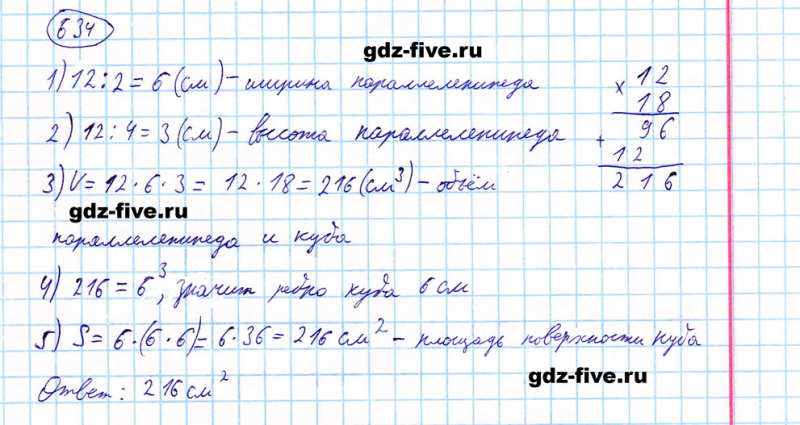 634
gdz-five.ru
1) 12 : 2 = 6 (см) – ширина параллелепипеда
2) 12 : 4 = 3 (см) – высота параллелепипеда
3) V = 12 · 6 · 3 = 12 · 18 = 216 (см³) – объём
gdz-five.ru
параллелепипеда и куба
4) 216 = 6³, значит ребро куба 6 см
5) S = 6 · (6 · 6) = 6 · 36 = 216 см² – площадь поверхности куба
gdz-five.ru
Ответ: 216 см²
× 12
18
+ 96
12
216